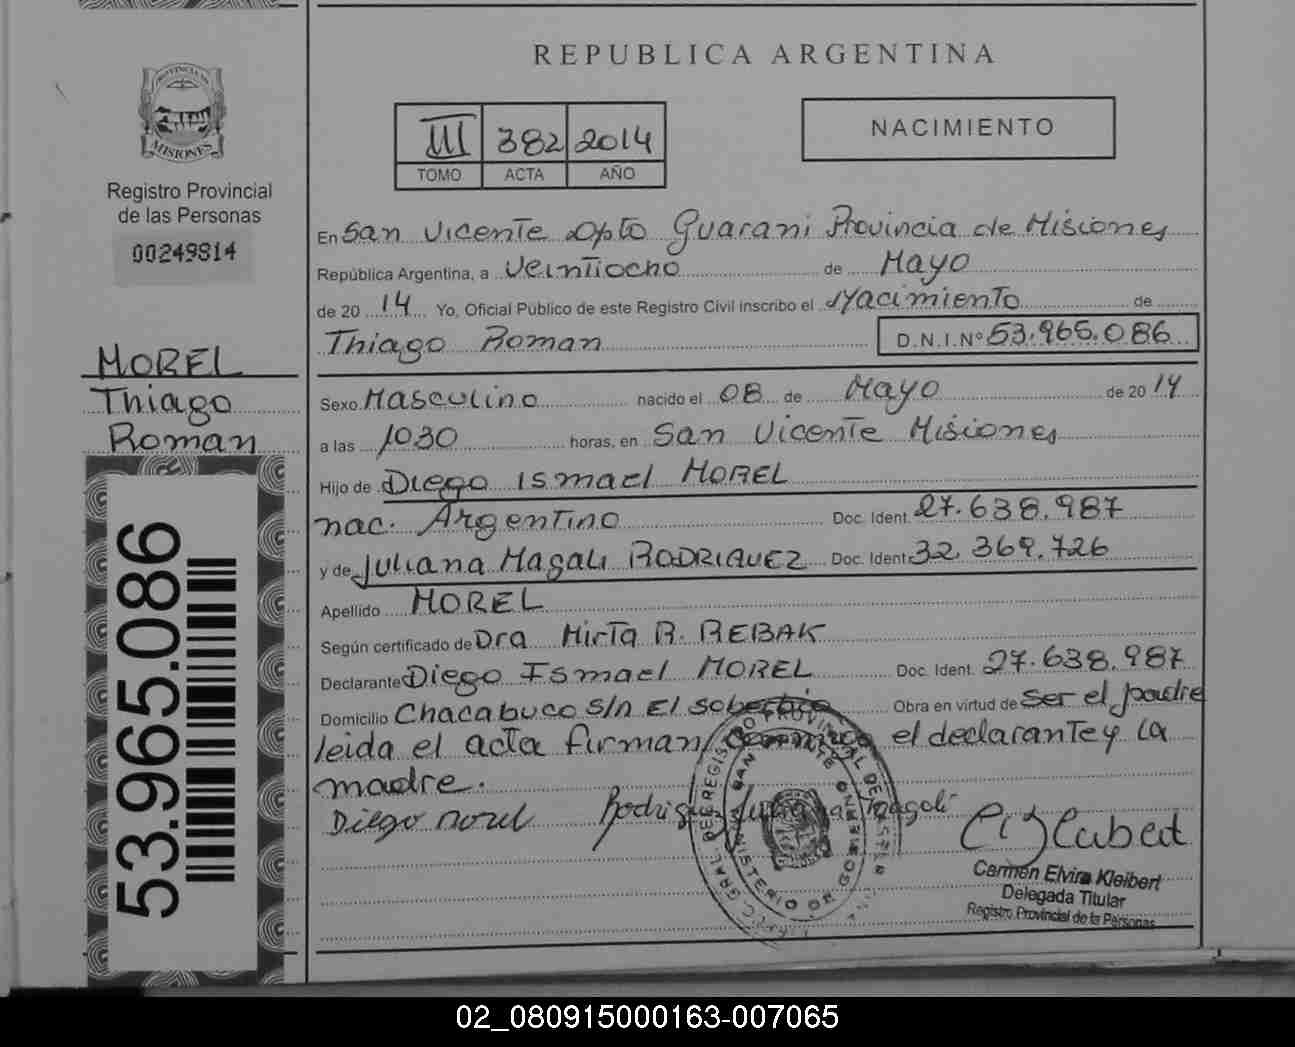 REPUBLICA ARGENTINA
PROVINCIA DE
MISIONES
Registro Provincial
de las Personas
00249814
III 382 2014
TOMO ACTA AÑO
NACIMIENTO
En San Vicente Dpto Guarani Provincia de Misiones
República Argentina, a Veintiocho de Mayo
de 20 14 Yo, Oficial Público de este Registro Civil inscribo el Nacimiento de
Thiago Roman D.N.I.Nº 53.965.086
MOREL
Thiago
Roman
Sexo Masculino nacido el 08 de Mayo de 20 14
a las 1030 horas, en San Vicente Misiones
Hijo de Diego Ismael MOREL
nac. Argentino Doc. Ident. 27.638.987
y de Juliana Magali RODRIGUEZ Doc. Ident. 32.369.726
Apellido MOREL
Según certificado de Dra Mirta R. REBAK
Declarante Diego Ismael MOREL Doc. Ident. 27.638.987
Domicilio Chacabuco S/n El Soberbio Obra en virtud de Ser el padre
leida el acta firman conmigo el declarante y la
madre.
Diego Morel Rodriguez Juliana Magali
Carmen Elvira Kleibert
Delegada Titular
Registro Provincial de la Personas
53.965.086
02_080915000163-007065